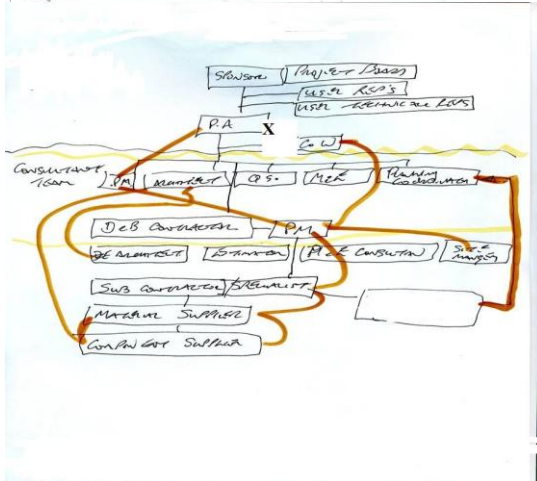 SPONSOR PROJECT BOARD
USER REP'S
USER TECHNICAL REPS
P.A X
C.O.W
CONSULTANT TEAM P.M ARCHITECT Q.S. M&E Planning
D&B CONTRACTOR P.M.
ARCHITECT ESTIMATOR M&E CONSULTANT SITE MANAGER
SUB CONTRACTOR / SPECIALIST
MATERIAL SUPPLIER
COMPONENT SUPPLIER